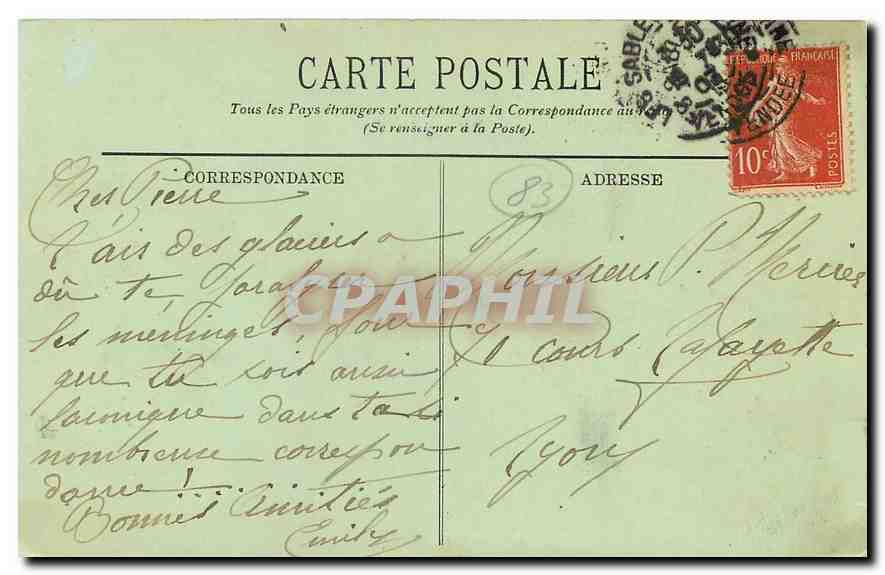 CARTE POSTALE
Tous les Pays étrangers n'acceptent pas la Correspondance au
(Se renseigner à la Poste).
CORRESPONDANCE
ADRESSE
83
RÉPUBLIQUE FRANÇAISE
10c
POSTES
SABLES
VENDÉE
Cher Pierre
L'air des glaciers a
dû te
les méninges, pour
que tu sois aussi
laconique dans ta si
nombreuse correspon
dance !....
Bonnes Amitiés
Emily
Monsieur P. Mercier
cours Lafayette
Lyon
CPAPHIL